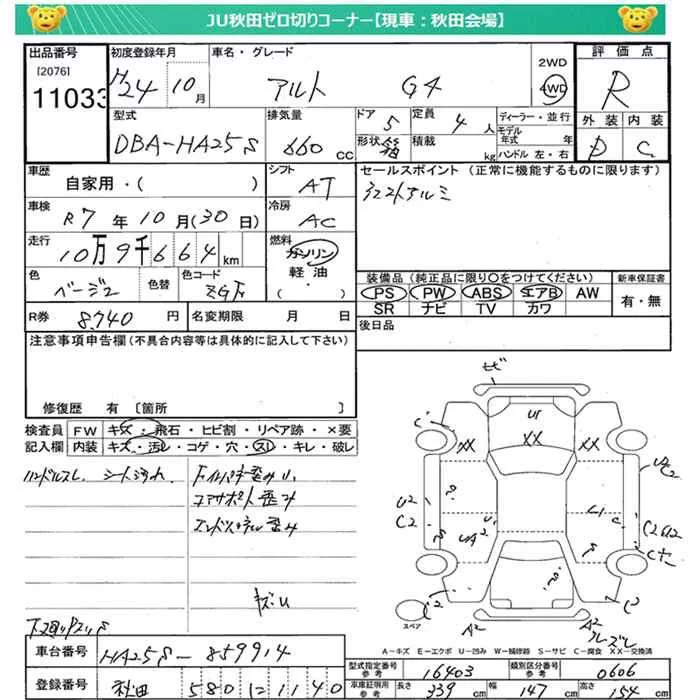 JU秋田ゼロ切りコーナー【現車：秋田会場】
出品番号 [2076] 11033
初度登録年月 H24 10月
車名・グレード アルト G4
2WD 4WD
評価点 R
外装 D 内装 C
型式 DBA-HA25S
排気量 660 CC
ドア 5 形状 箱
定員 4人 積載 kg
ディーラー・並行
モデル年式 年
ハンドル 左・右
車歴 自家用・( )
シフト AT
セールスポイント (正常に機能するものに限ります)
社外アルミ
車検 R7年10月(30日)
冷房 AC
走行 10万9千664km
燃料 ガソリン 軽油 ( ・ )
色 ベージュ 色替 色コード ZGF
装備品 (純正品に限り○をつけてください)
PS PW ABS エアB AW
SR ナビ TV カワ
新車保証書 有・無
R券 8740円 名変期限 月 日
後日品
注意事項申告欄 (不具合内容等は具体的に記入して下さい)
修復歴 有 [箇所 ]
検査員記入欄 FW キズ・飛石・ヒビ割・リペア跡・×要
内装 キズ・汚レ・コゲ・穴・スレ・キレ・破レ
ハンドルスレ シート汚れ
コアサポート歪み
エンドパネル歪み
キズU
ヒビ
C
U
XX XX XX
U2
C2
UA2
U
C2
C
A2
A2
スペア
A－キズ E－エクボ U－凹み W－補修跡 S－サビ C－腐食 XX－交換済
車台番号 HA25S-859914
登録番号 秋田 580 い 1140
型式指定番号 参考 16403
類別区分番号 参考 0606
車庫証明用 参考 長さ 339 幅 147 高さ 154 cm